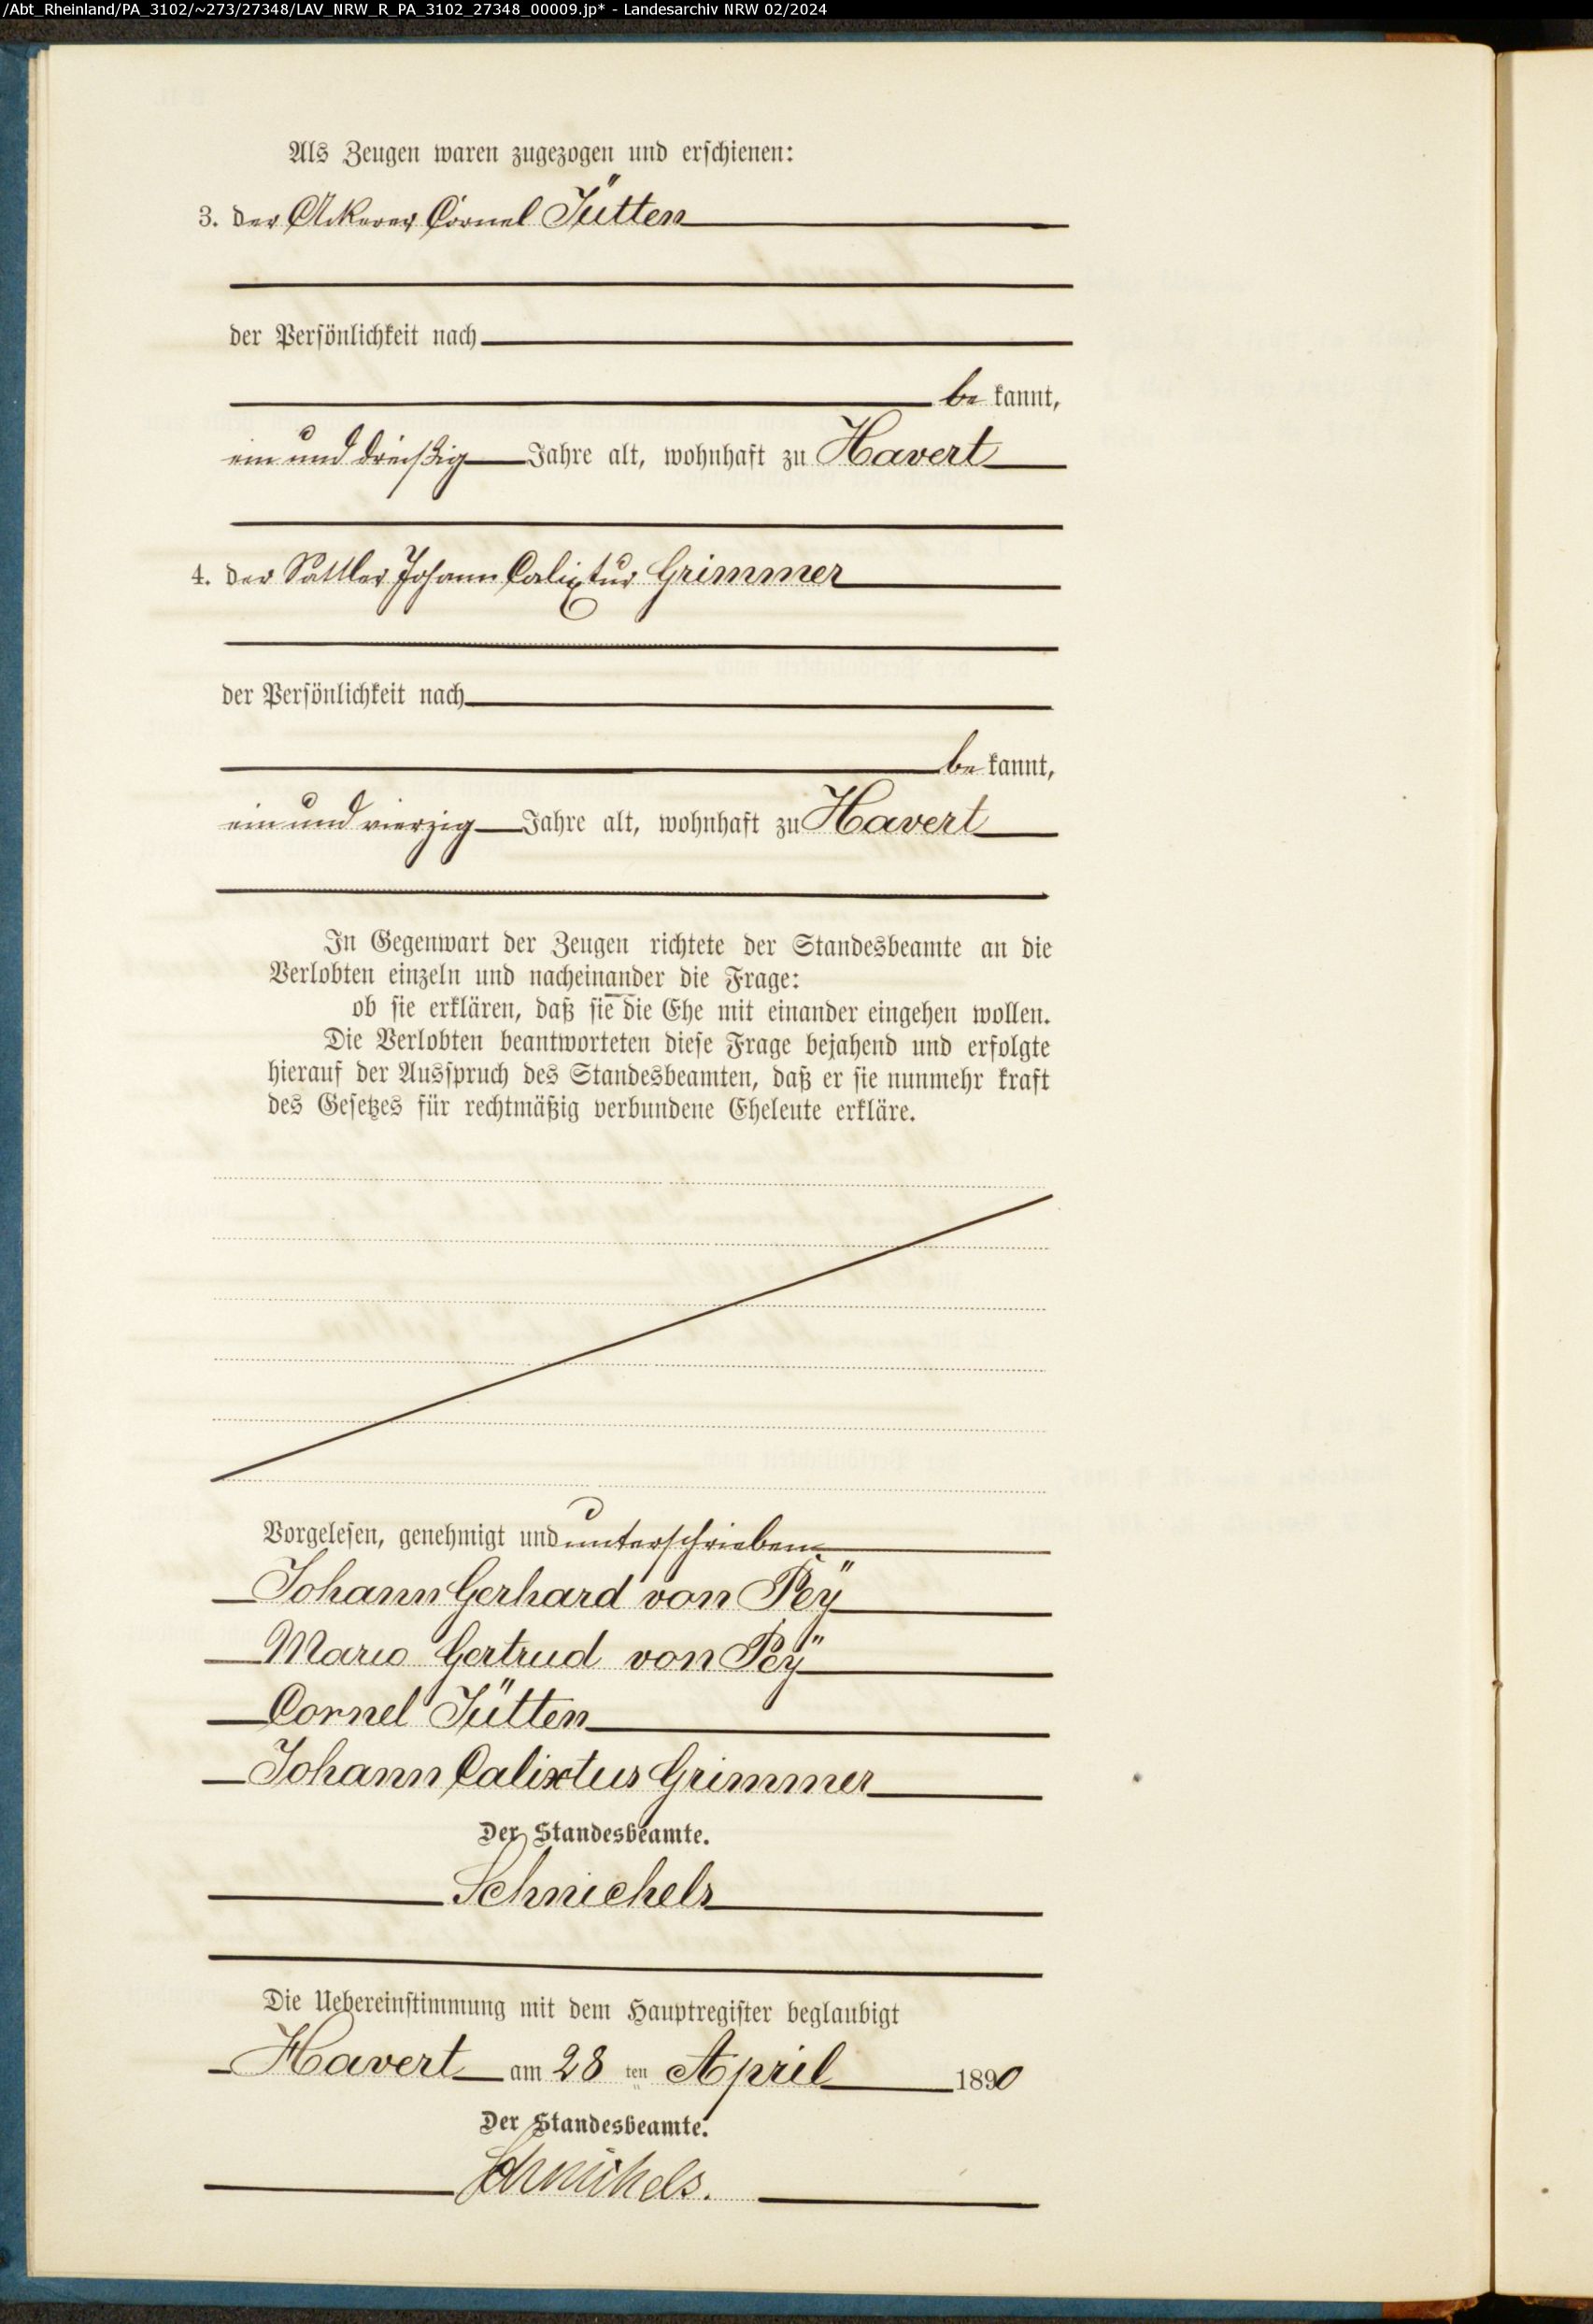 /Abt_Rheinland/PA_3102/~273/27348/LAV_NRW_R_PA_3102_27348_00009.jp* - Landesarchiv NRW 02/2024
Als Zeugen waren zugezogen und erschienen:
3. der Ackerer Cornel Jütten
der Persönlichkeit nach
be kannt,
ein und dreißig Jahre alt, wohnhaft zu Havert
4. der Sattler Johann Calixtus Grimmer
der Persönlichkeit nach
be kannt,
ein und vierzig Jahre alt, wohnhaft zu Havert
In Gegenwart der Zeugen richtete der Standesbeamte an die
Verlobten einzeln und nacheinander die Frage:
ob sie erklären, daß sie die Ehe mit einander eingehen wollen.
Die Verlobten beantworteten diese Frage bejahend und erfolgte
hierauf der Ausspruch des Standesbeamten, daß er sie nunmehr kraft
des Gesetzes für rechtmäßig verbundene Eheleute erkläre.
Vorgelesen, genehmigt und unterschrieben
Johann Gerhard von Peÿ
Maria Gertrud von Peÿ
Cornel Jütten
Johann Calixtus Grimmer
Der Standesbeamte.
Schmichels
Die Uebereinstimmung mit dem Hauptregister beglaubigt
Havert am 28 ten April 1890
Der Standesbeamte.
Schmichels.